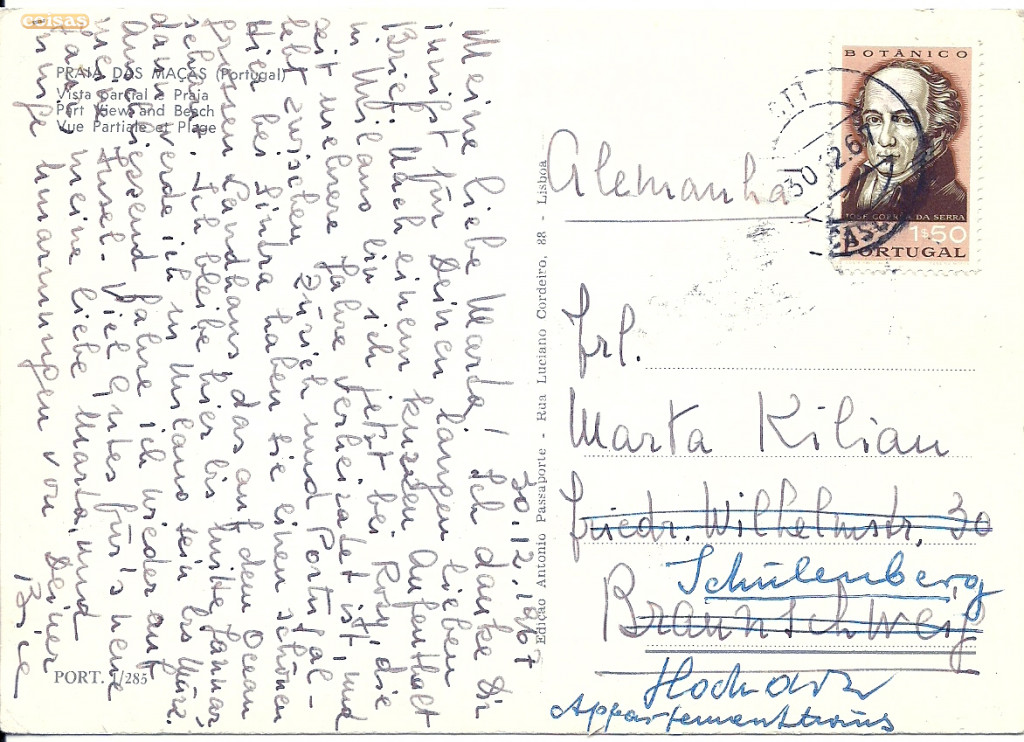 coisas
PRAIA DAS MAÇÃS (Portugal)
Vista parcial e Praia
Part View and Beach
Vue Partiale et Plage
30.12.1967
Meine liebe Marta! Ich danke Dir
innigst für Deinen langen lieben
Brief. Nach einem kurzen Aufenthalt
in Milano bin ich jetzt bei Rosy, die
seit mehrere Jahre verheiratet ist, und
lebt zwischen Zürich und Portugal -
Hier bei Sintra haben sie einen schönen
grossen Landhaus, das auf dem Ocean
schaut. Ich bleibe hier bis mitte Januar,
dann werde ich in Milano sein bis März.
Anschliessend fahre ich wieder auf
Insel. Viel Gutes für's neue
Jahr meine liebe Marta, und
innige Umarmungen von Deiner
PORT. 1/285
Edição Antonio Passaporte - Rua Luciano Cordeiro, 88 - Lisboa
BOTÂNICO
JOSÉ CORREIA DA SERRA
1$50
PORTUGAL
CTT
30.12.67
Alemanha
Frl.
Marta Kilian
Friedr. Wilhelmstr. 30
Schulenberg
Braunschweig
Hochharz
Appartementhaus